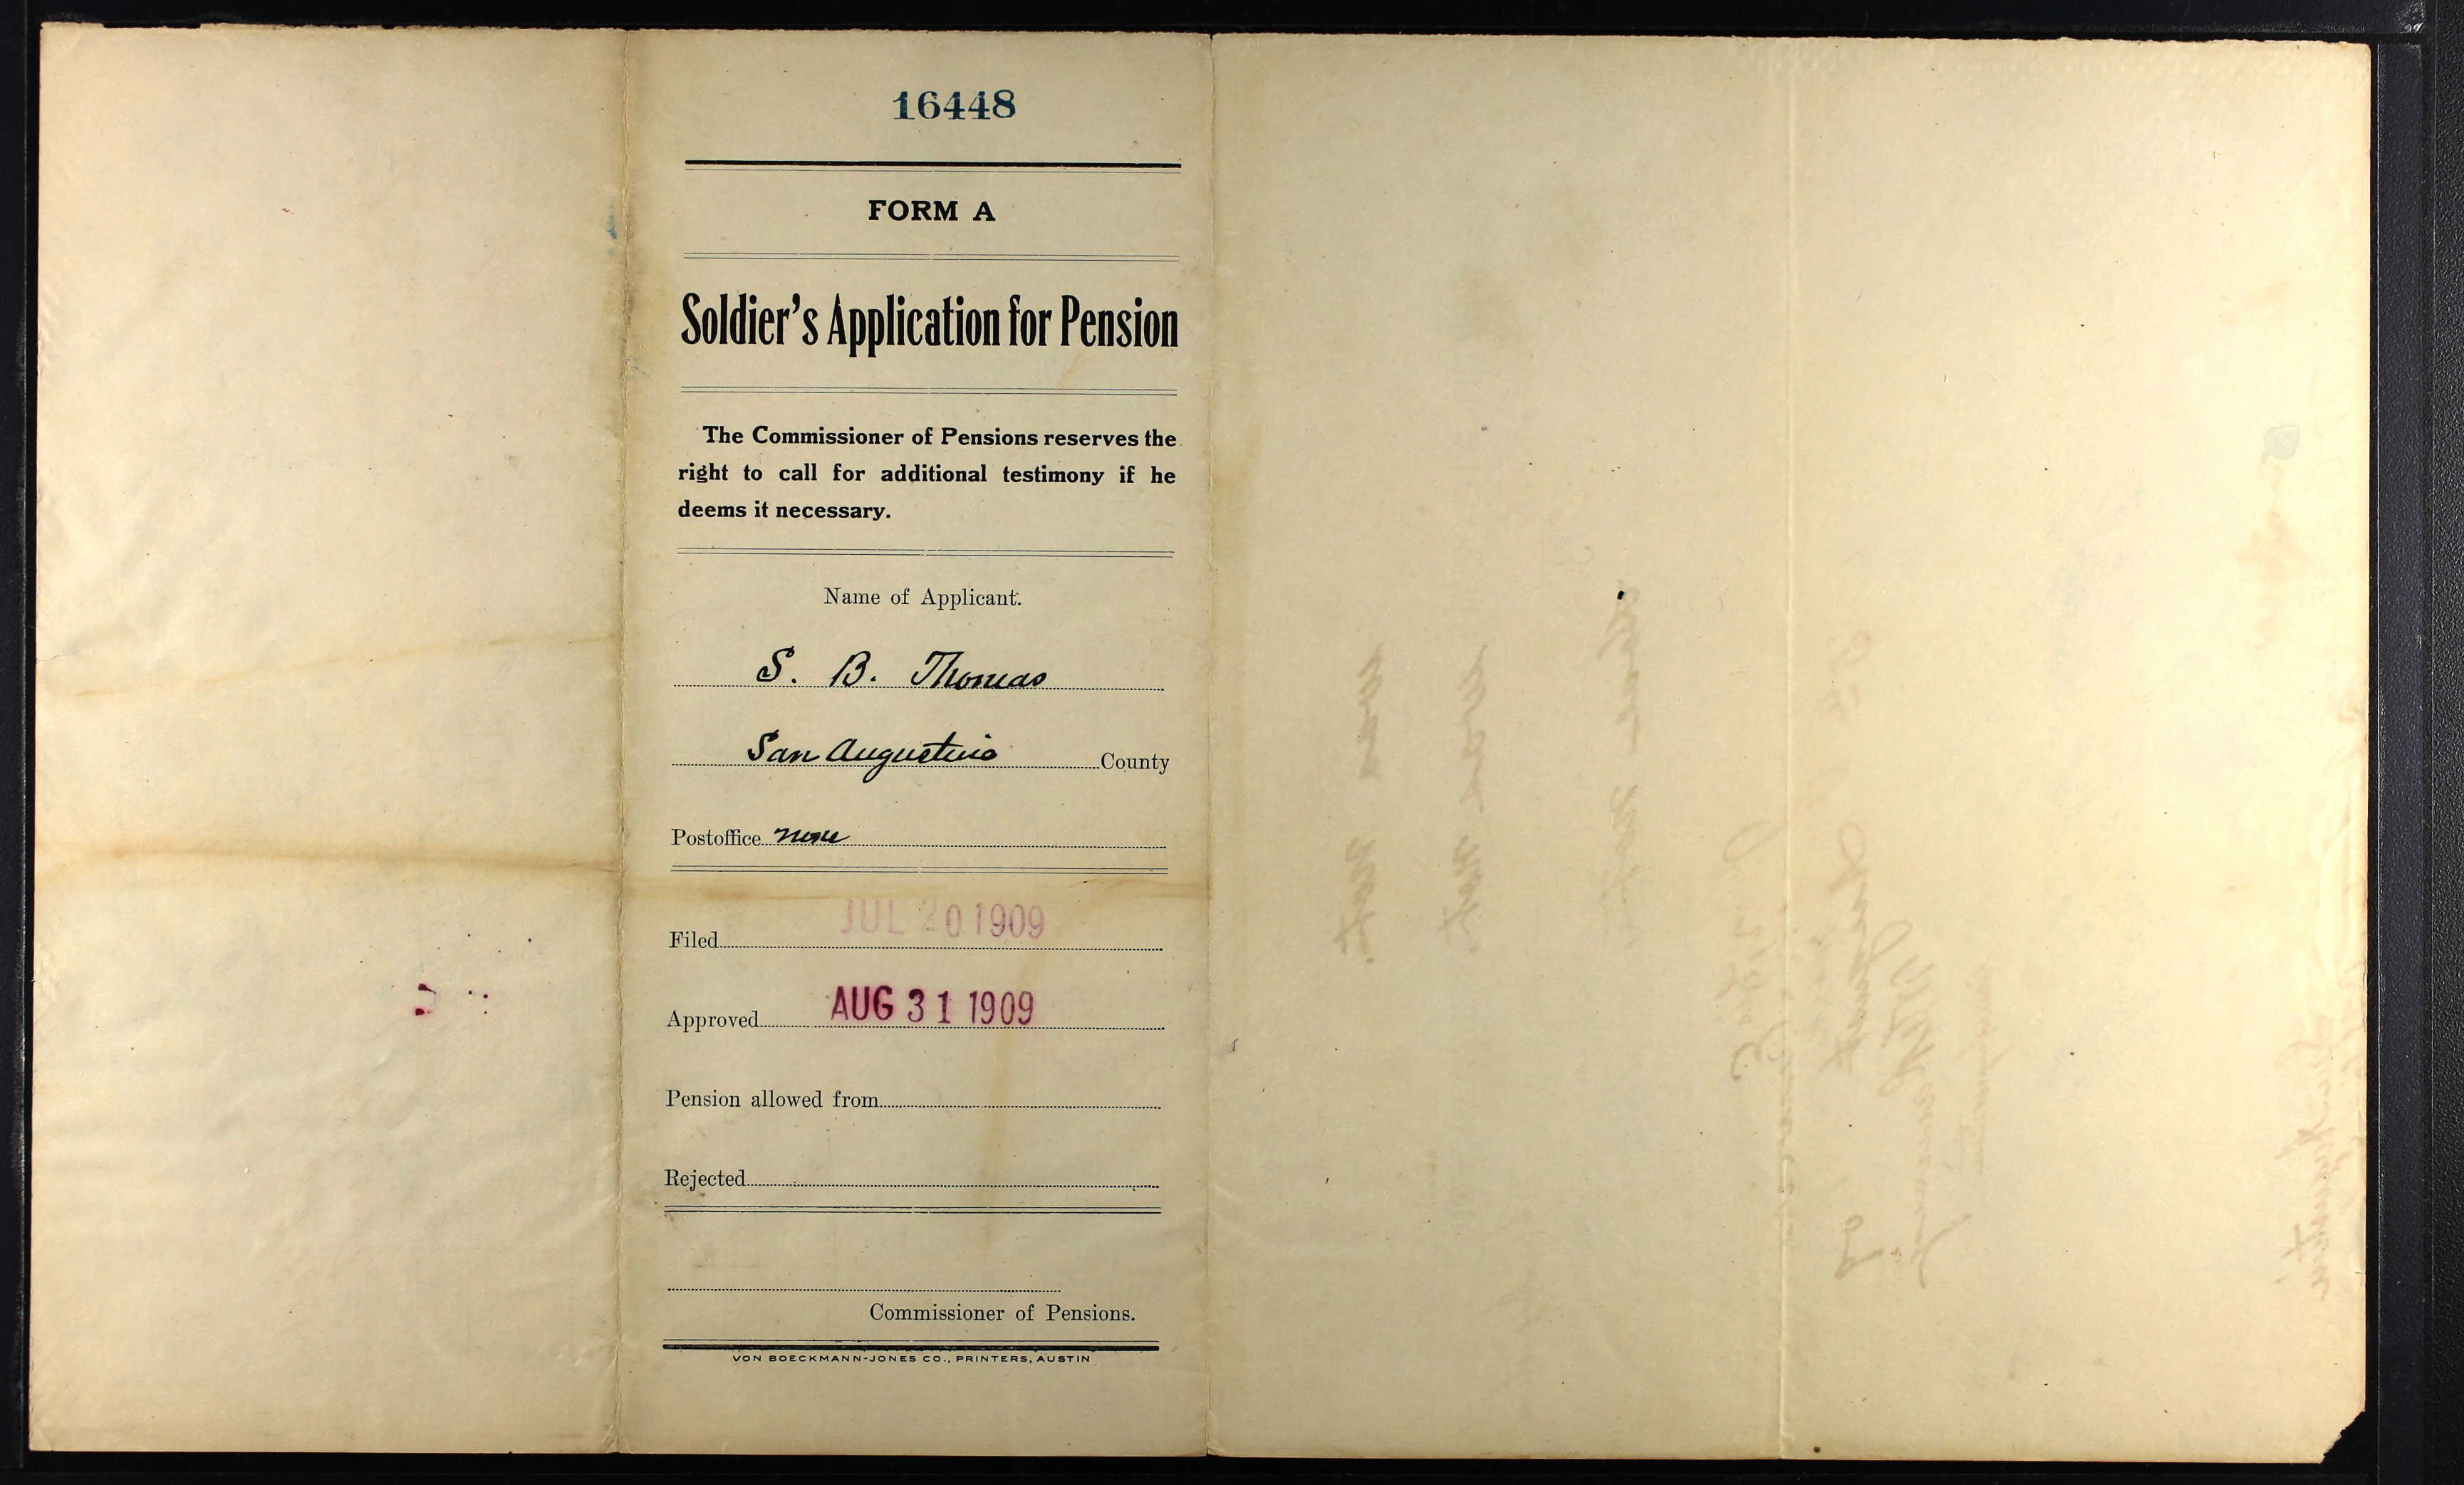 16448
FORM A
Soldier's Application for Pension
The Commissioner of Pensions reserves the
right to call for additional testimony if he
deems it necessary.
Name of Applicant.
S. B. Thomas
San Augustine County
Postoffice
Filed JUL 20 1909
Approved AUG 31 1909
Pension allowed from
Rejected
Commissioner of Pensions.
VON BOECKMANN-JONES CO., PRINTERS, AUSTIN